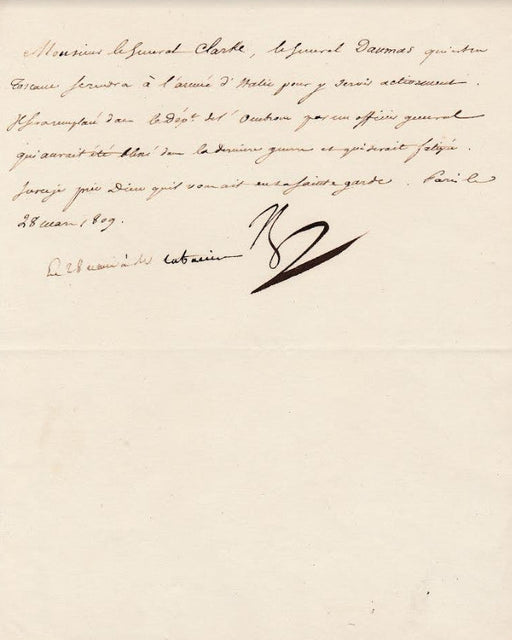 Monsieur le General Clarke, le General Daumas qui est en
Toscane servira à l'armée d'Italie pour y servir activement.
Il sera remplacé dans le Dépt de l'Ombrone par un officier general
qui aurait été blessé dans la derniere guerre et qui serait fatigué.
Sur ce je prie Dieu qu'il vous ait en sa sainte garde. Paris le
28 mars 1809.
Le 28 mars à